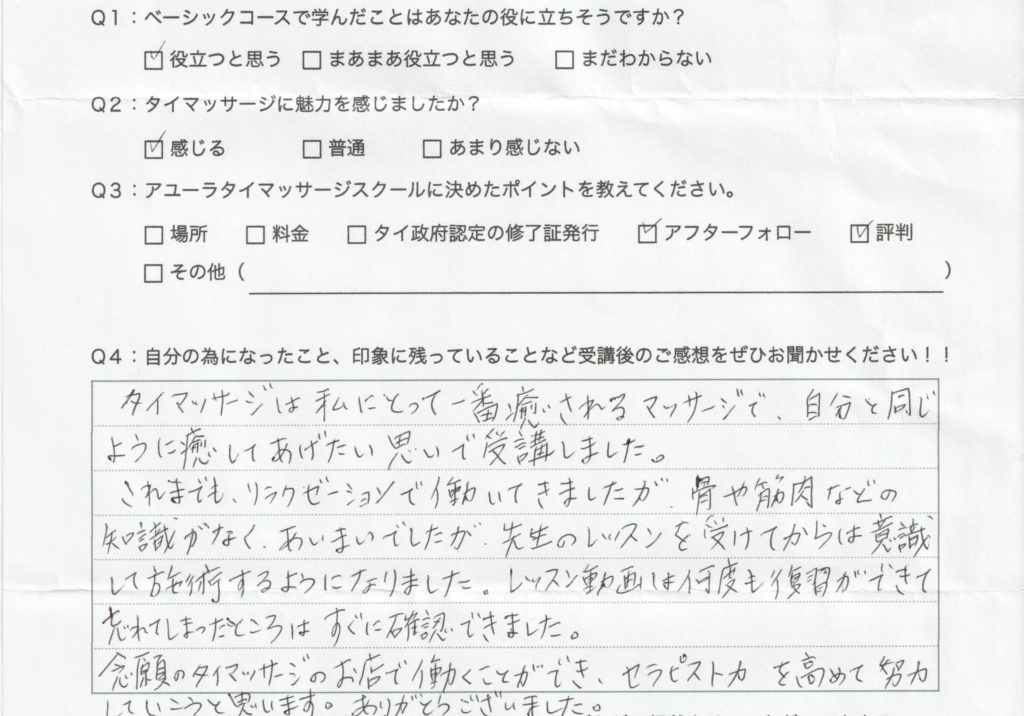 Q1：ベーシックコースで学んだことはあなたの役に立ちそうですか？
☑ 役立つと思う □ まあまあ役立つと思う □ まだわからない
Q2：タイマッサージに魅力を感じましたか？
☑ 感じる □ 普通 □ あまり感じない
Q3：アユーラタイマッサージスクールに決めたポイントを教えてください。
□ 場所 □ 料金 □ タイ政府認定の修了証発行 ☑ アフターフォロー ☑ 評判
□ その他（ ）
Q4：自分の為になったこと、印象に残っていることなど受講後のご感想をぜひお聞かせください！！
タイマッサージは私にとって一番癒されるマッサージで、自分と同じ
ように癒してあげたい思いで受講しました。
これまでも、リラクゼーションで働いてきましたが、骨や筋肉などの
知識がなく、あいまいでしたが、先生のレッスンを受けてからは意識
して施術するようになりました。レッスン動画は何度も復習ができて
忘れてしまったところはすぐに確認できました。
念願のタイマッサージのお店で働くことができ、セラピスト力を高めて努力
していこうと思います。ありがとうございました。